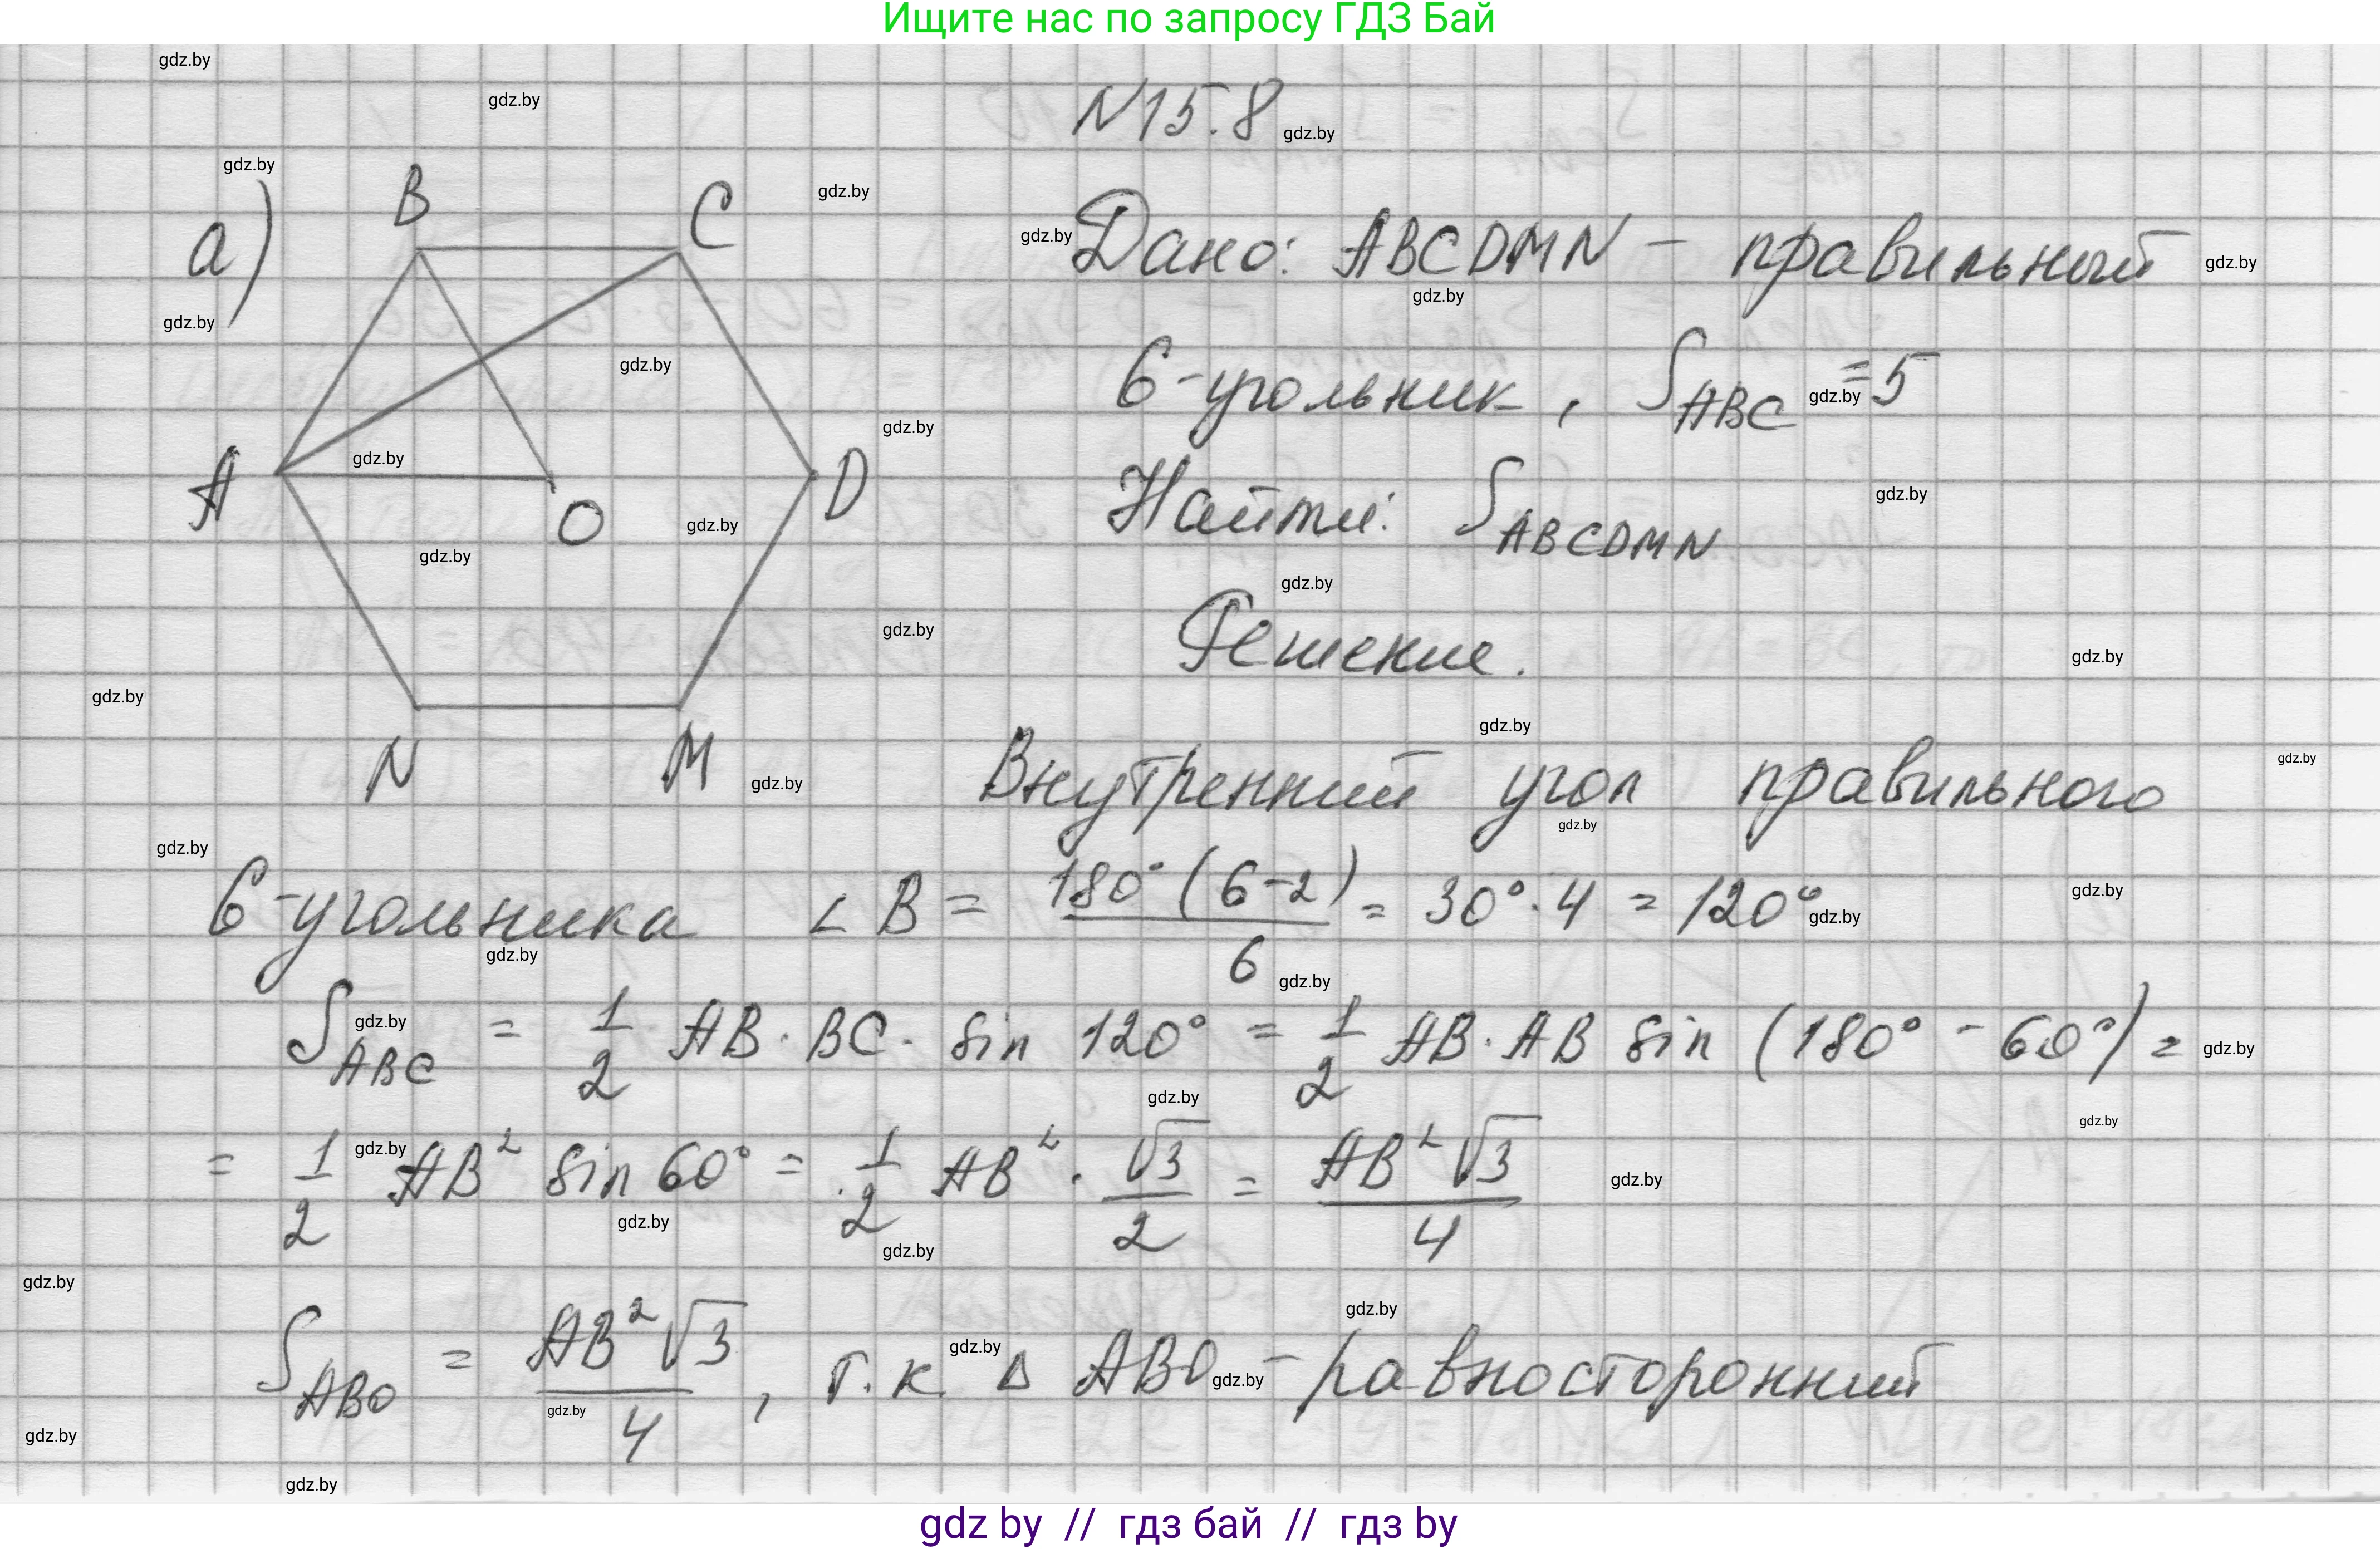 Ищите нас по запросу ГДЗ Бай
N15.8
а)
B
C
A
O
D
N
M
Дано: ABCDMN - правильный
6-угольник, S_ABC = 5
Найти: S_ABCDMN
Решение.
Внутренний угол правильного
6-угольника ∠B = 180°(6-2)/6 = 30°·4 = 120°
S_ABC = 1/2 AB·BC·sin 120° = 1/2 AB·AB sin (180° - 60°) =
= 1/2 AB² sin 60° = 1/2 AB² · √3/2 = AB²√3/4
S_ABO = AB²√3/4, т.к. Δ ABO - равносторонний
gdz by // гдз бай // гдз by